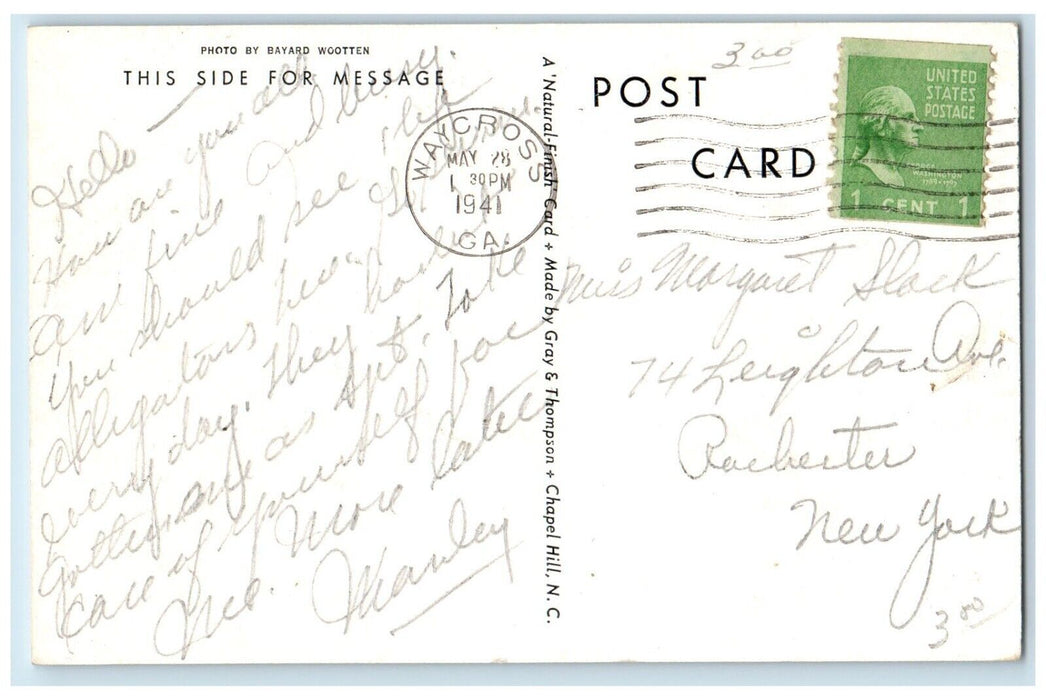 PHOTO BY BAYARD WOOTTEN
THIS SIDE FOR MESSAGE
Hello —
How are you all
am fine and busy.
You should see the
alligators here. Get
every day. They
as Spt. Take
care of yourself for
me. More later
Manley
A 'Natural-Finish' Card + Made by Gray & Thompson + Chapel Hill, N. C.
POST
CARD
3 00
WAYCROSS
MAY 28
1 30PM
1941
GA.
UNITED
STATES
POSTAGE
GEORGE
WASHINGTON
1789-1797
1 CENT 1
Miss Margaret Slack
74 Leighton Ave.
Rochester
New York
3 00